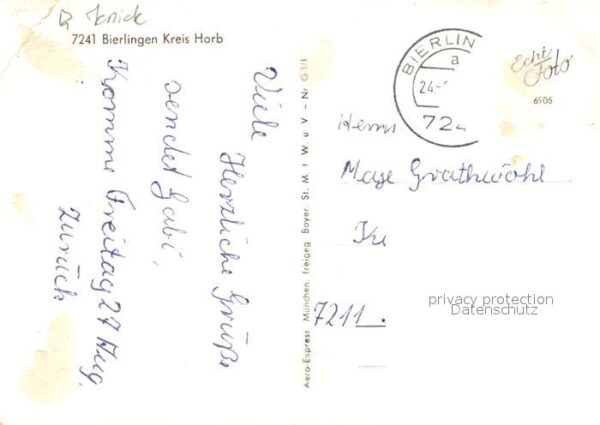 7241 Bierlingen Kreis Horb
Viele
Herzliche Grüße
sendet Gabi,
Komme Freitag 27 Aug.
zurück
Aero-Express München, freigeg. Bayer. St. M. f W u V - Nr G 1/1
BIERLIN
a
24.-
724
Echt
Foto
6906
Herrn
Grathwohl
7211
privacy protection
Datenschutz